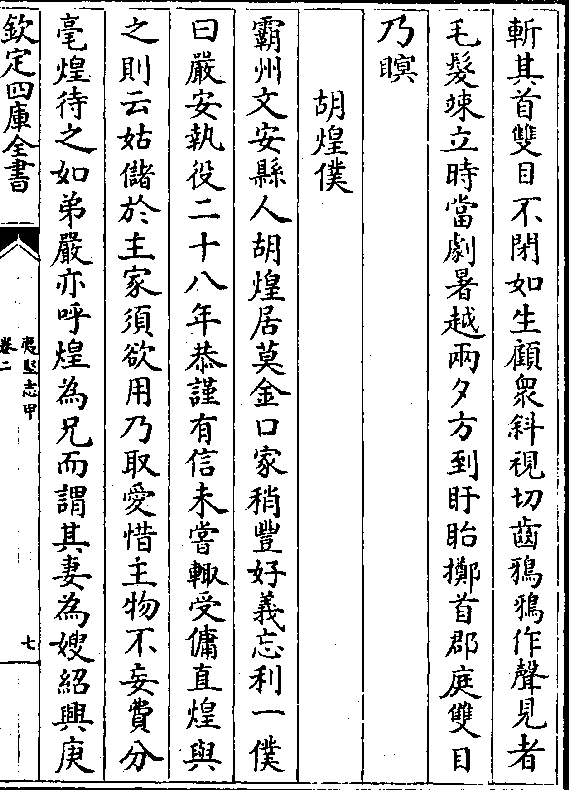 斬其首雙目不閉如生顧衆斜視切齒鴉鴉作聲見者
毛髮竦立時當劇暑越兩夕方到盱眙擲首郡庭雙目
乃瞑
胡煌僕
霸州文安縣人胡煌居莫金口家稍豐好義忘利一僕
曰嚴安執役二十八年恭謹有信未嘗輙受傭直煌與
之則云姑儲於主家須欲用乃取愛惜主物不妄費分
毫煌待之如弟嚴亦呼煌為兄而謂其妻為嫂紹興庚
欽定四庫全書
夷堅志甲
卷二
七